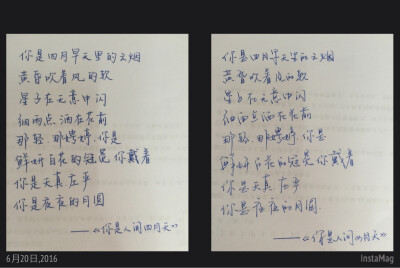 你是四月早天里的云烟
黄昏吹着风的软
星子在无意中闪
细雨点洒在花前
那轻,那娉婷,你是
鲜妍百花的冠冕你戴着
你是天真 庄严
你是夜夜的月圆
——《你是人间四月天》
你是四月早天里的云烟
黄昏吹着风的软
星子在无意中闪
细雨点洒在花前
那轻,那娉婷,你是
鲜妍百花的冠冕你戴着
你是天真 庄严
你是夜夜的月圆
——《你是人间四月天》
6月20日,2016
InstaMag